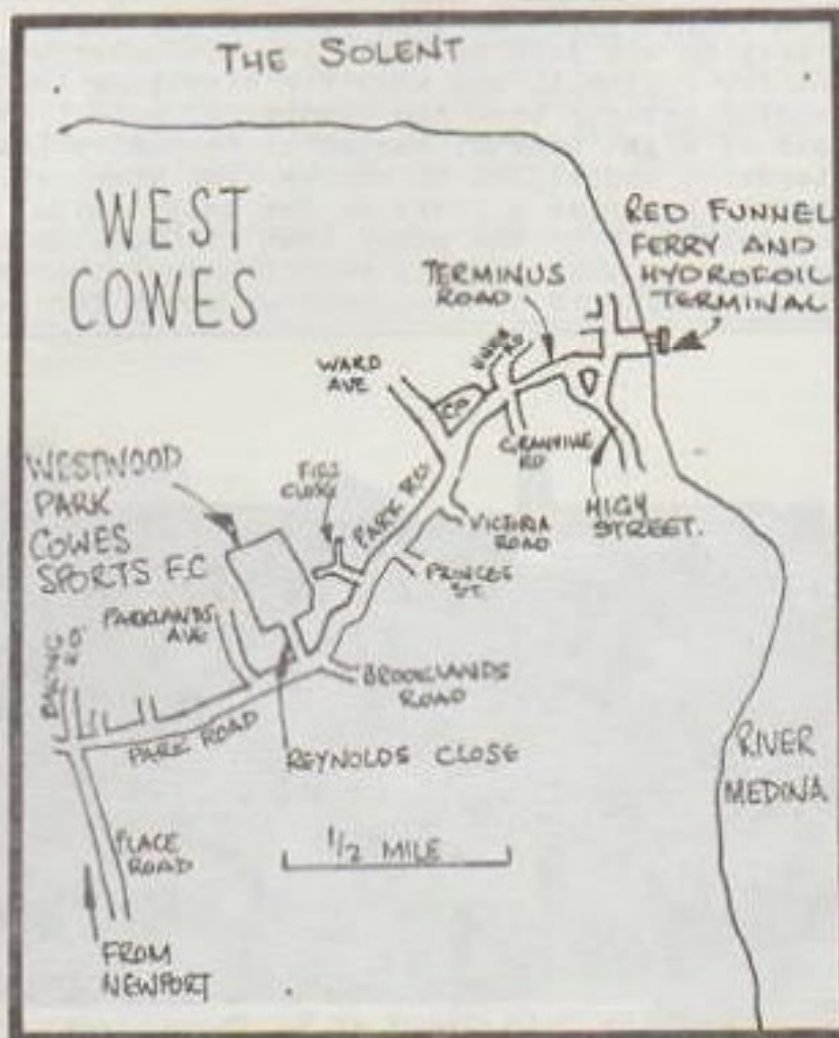 THE SOLENT
WEST
COWES
RED FUNNEL
FERRY AND
HYDROFOIL
TERMINAL
TERMINUS
ROAD
UNION
RD
WARD
AVE
CP
GRANVILLE
RD
HIGY
STREET.
WESTWOOD
PARK
COWES
SPORTS F.C
FIRS
CLOSE
PARK RD
VICTORIA
ROAD
PRINCES
ST.
PARKLANDS
AVE
BARING
RD
BROOKLANDS
ROAD
PARK ROAD
REYNOLDS CLOSE
RIVER
MEDINA
1/2 MILE
PLACE
ROAD
FROM
NEWPORT